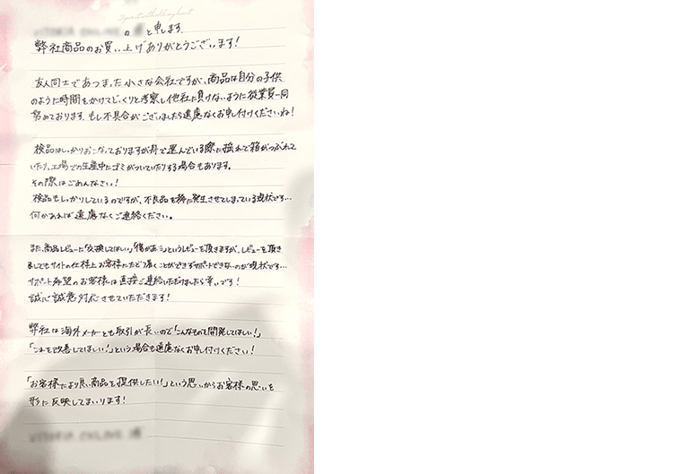 と申します。
弊社商品のお買い上げありがとうございます!
友人同士であつまった小さな会社ですが、商品は自分の子供
のように時間をかけてじっくりと考察し他社に負けないように従業員一同
努めております。もし不具合がございましたら遠慮なくお申し付けくださいね!
検品はしっかりおこなっておりますが舟で運んでいる際に揺れて箱がつぶれて
いたり、工場での生産中にゴミがついていたりする場合もあります。
その際はごめんなさい!
検品もしっかりしているのですが、不良品を稀に発生させてしまっている現状です…
何かあれば遠慮なくご連絡ください。
また、商品レビューに「交換してほしい」「傷があった」というレビューを頂きますが、レビューを頂き
ましてもサイトの仕様上お客様にたどり着くことができずサポートできない…のが現状です…
サポート希望のお客様は直接ご連絡いただけましたら幸いです!
誠心誠意対応させていただきます!
弊社は海外メーカーとも取引が長いので「こんなもの開発してほしい!」
「これを改善してほしい!」という場合も遠慮なくお申し付けください!
「お客様により良い商品を提供したい!」という思いからお客様の思いを
形に反映してまいります!